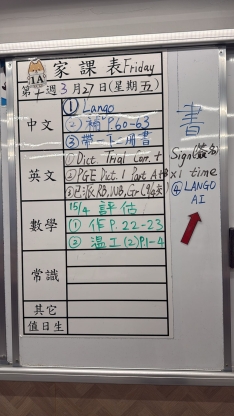 1A
家課表Friday
第十週3月27日(星期五)
中文
① Lango
② 補 P.60-63
③ 帶一下冊書
書
英文
① Dict. Trial Corr. +
Sign 簽名
② PGE Dict. 1 Part A+B x1 time
④ LANGO
AI
數學
15/4 評估
① 作 P.22-23
② 溫工(2)P1-4
常識
其它
值日生